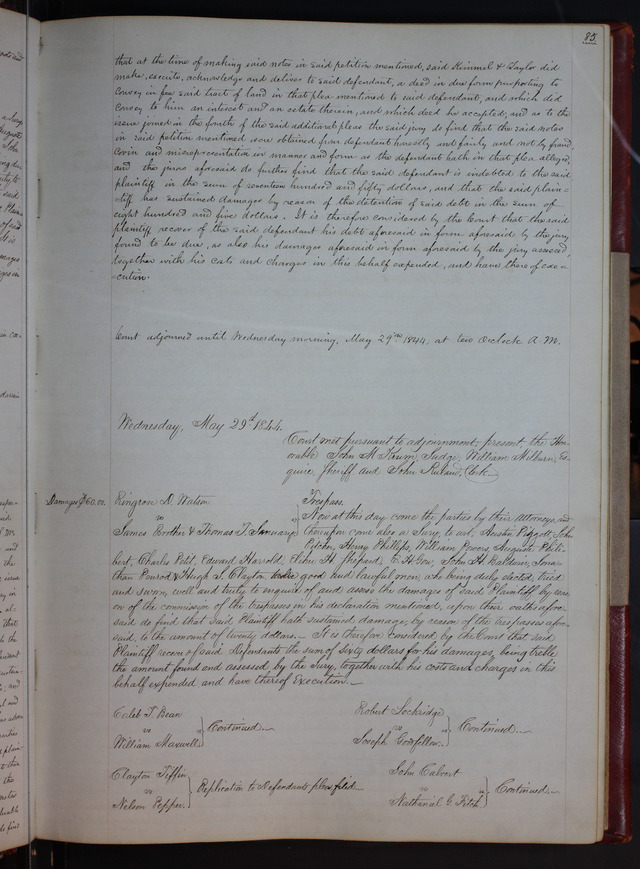 85
that at the time of making said notes in said petition mentioned, said Kimmel & Taylor did
make, execute, acknowledge and deliver to said defendant, a deed in due form purporting to
convey in fee said tract of land in that plea mentioned to said defendant, and which did
convey to him an interest and an estate therein, and which deed he accepted; and as to the
issue joined in the fourth of the said additional pleas the said jury do find that the said notes
in said petition mentioned were obtained from defendant honestly and fairly and not by fraud,
covin and misrepresentation in manner and form as the defendant hath in that plea alleged,
and the jurors aforesaid do further find that the said defendant is indebted to the said
plaintiff in the sum of seventeen hundred and fifty dollars, and that the said plain=
=tiff has sustained damages by reason of the detention of said debt in the sum of
eight hundred and five dollars. It is therefore considered by the Court that the said
plaintiff recover of the said defendant his debt aforesaid in form aforesaid by the jury
found to be due, as also his damages aforesaid in form aforesaid by the jury assessed,
together with his costs and charges in this behalf expended, and have thereof exe=
=cution.
Court adjourned until Wednesday morning, May 29th 1844, at ten O'clock A. M.
Wednesday, May 29th 1844.
Court met pursuant to adjournment, present, the Hon-
orable John M Krum, Judge, William Milburn, Es-
quire, Sheriff and John Ruland, Clerk
Damages $60.00. Ringrose D. Watson
vs
James Brother & Thomas T. January
Trespass.
Now at this day come the parties by their Attorneys, and
thereupon come also a Jury, to wit, Austin Piggott, John
Pitcher, Henry Phillips, William Powers, Auguste Phili-
bert, Charles Petit, Edward Harrold, Elihu H. Shepard, E. H. Gow, John H. Baldwin, Jona-
than Penrod & Hugh T. Clayton twelve good and lawful men, who being duly elected, tried
and sworn, well and truly to enquire of and assess the damages of said Plaintiff by reas-
on of the commission of the trespasses in his declaration mentioned, upon their oaths afore-
said do find that said Plaintiff hath sustained damages by reason of the trespasses afore-
said, to the amount of twenty dollars. It is therefore considered by the Court that said
Plaintiff recover of said Defendants the sum of Sixty dollars for his damages, being treble
the amount found and assessed by the Jury, together with his costs and charges in this
behalf expended and have thereof Execution.
Caleb T. Bean
vs
William Maxwell
Continued.
Robert Lockridge
vs
Joseph Goodfellow.
Continued.
Clayton Tiffin
vs
Nelson Pepper.
Replication to Defendants plea filed.
John Calvert
vs
Nathaniel G. Fitch
Continued.